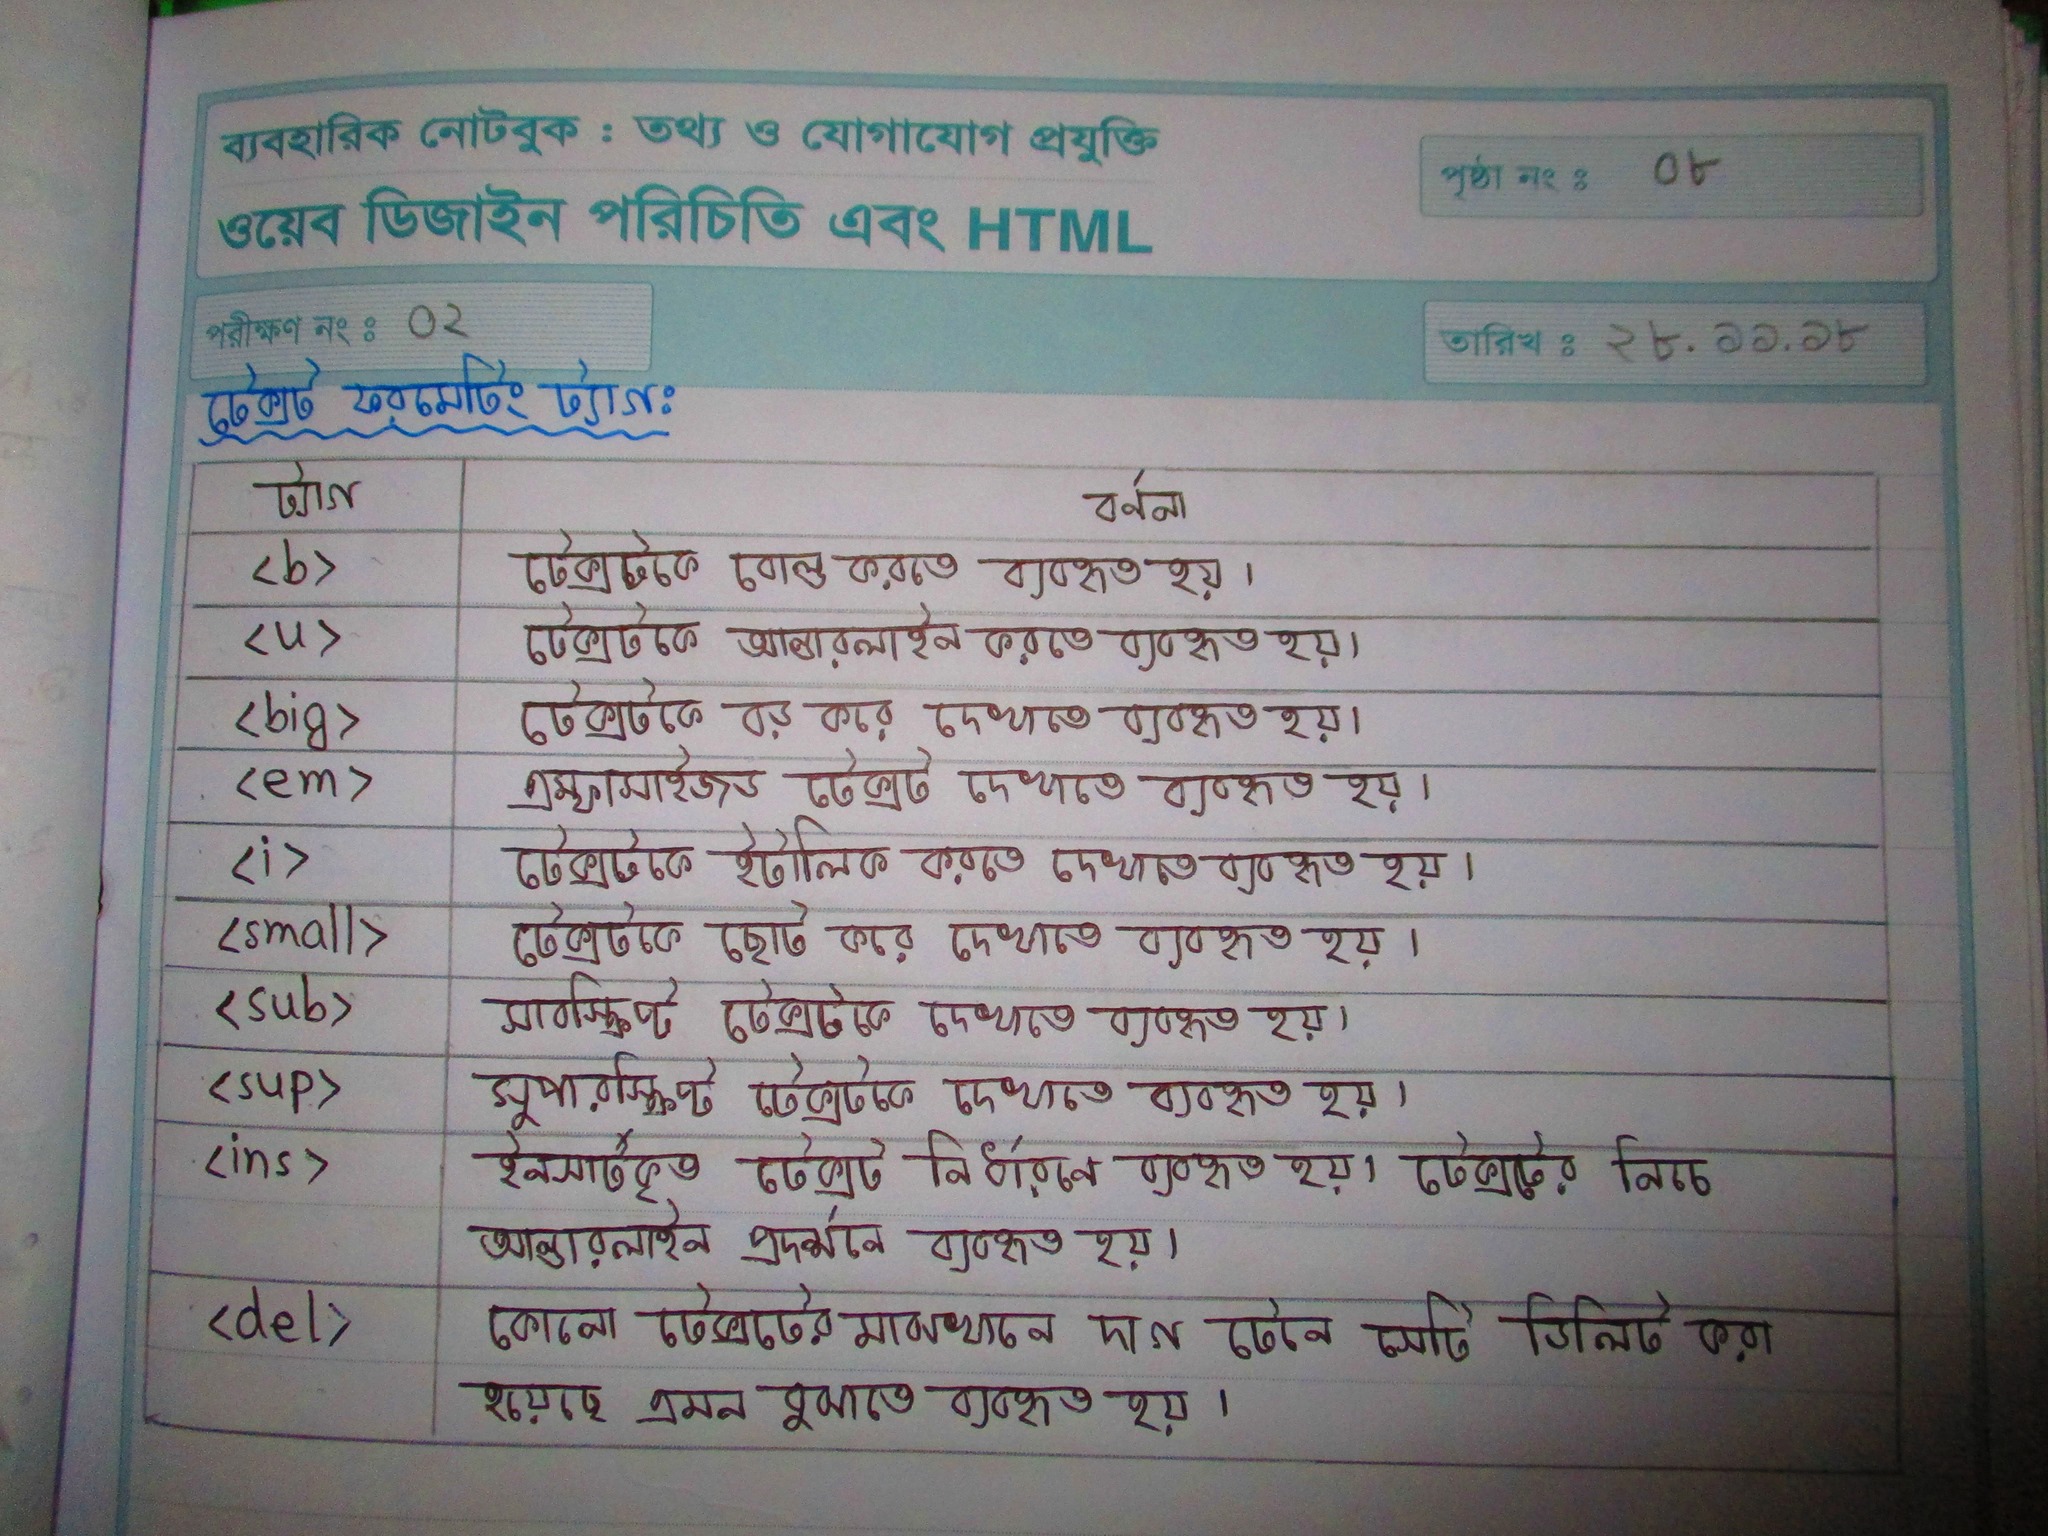 ব্যবহারিক নোটবুক : তথ্য ও যোগাযোগ প্রযুক্তি
ওয়েব ডিজাইন পরিচিতি এবং HTML
পৃষ্ঠা নং : ০৮
পরীক্ষণ নং : ০২
তারিখ : ২৮.১১.১৮
টেক্সট ফরমেটিং ট্যাগঃ
ট্যাগ বর্ননা
<b> টেক্সটকে বোল্ড করতে ব্যবহৃত হয়।
<u> টেক্সটকে আন্ডারলাইন করতে ব্যবহৃত হয়।
<big> টেক্সটকে বড় করে দেখাতে ব্যবহৃত হয়।
<em> এমফাসাইজড টেক্সট দেখাতে ব্যবহৃত হয়।
<i> টেক্সটকে ইটালিক করতে দেখাতে ব্যবহৃত হয়।
<small> টেক্সটকে ছোট করে দেখাতে ব্যবহৃত হয়।
<sub> সাবস্ক্রিপ্ট টেক্সটকে দেখাতে ব্যবহৃত হয়।
<sup> সুপারস্ক্রিপ্ট টেক্সটকে দেখাতে ব্যবহৃত হয়।
<ins> ইনসার্টকৃত টেক্সট নির্ধারনে ব্যবহৃত হয়। টেক্সটের নিচে
আন্ডারলাইন প্রদর্শনে ব্যবহৃত হয়।
<del> কোনো টেক্সটের মাঝখানে দাগ টেনে সেটি ডিলিট করা
হয়েছে এমন বুঝাতে ব্যবহৃত হয়।